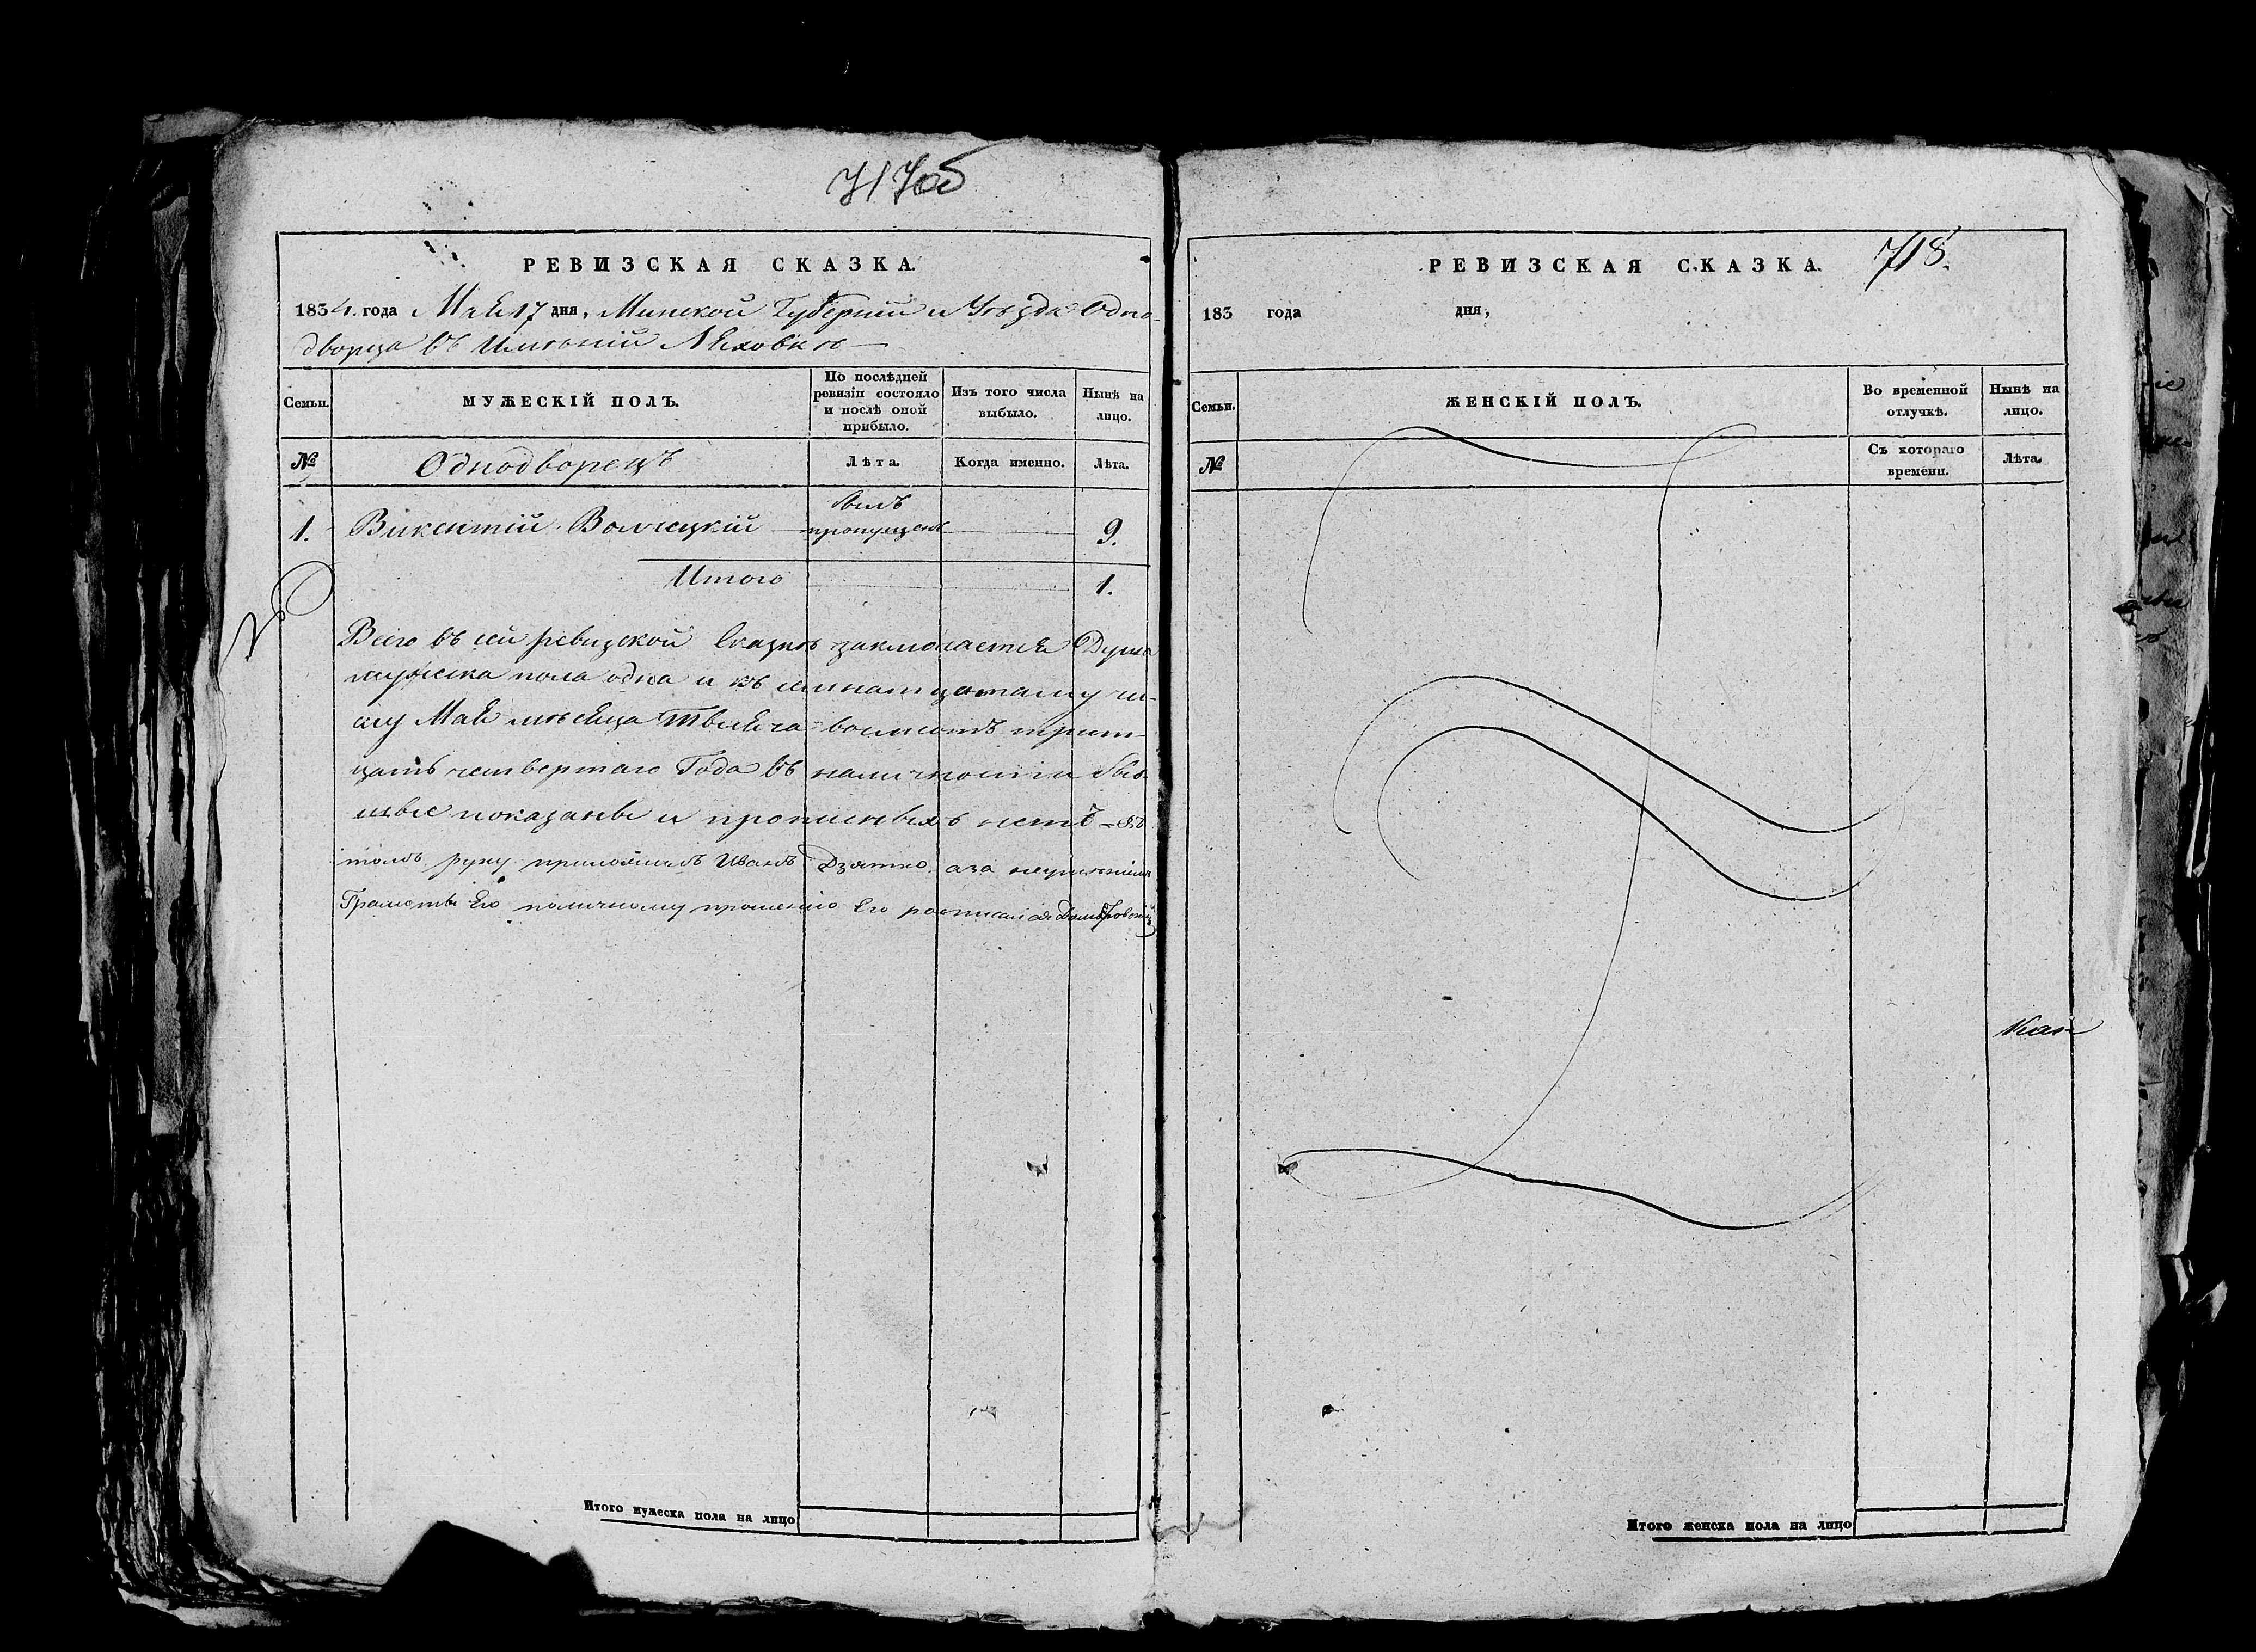 717об
РЕВИЗСКАЯ СКАЗКА.
1834. года Мая 17 дня, Минской Губерніи и Уѣзда Одно-
дворца въ Имѣніи Ляховкѣ
Семьи.
МУЖЕСКІЙ ПОЛЪ.
По послѣдней ревизіи состояло и послѣ оной прибыло.
Изъ того числа выбыло.
Нынѣ на лицо.
№
Однодворецъ
Лѣта.
Когда именно.
Лѣта.
1. Викентій Волчецкій был пропущенъ 9.
Итого 1.
Всего въ сей ревизской Сказкѣ заключается Душа
мужеска пола одна и къ семнатцатому чи-
слу Мая мѣсяца Тысяча восмсотъ трит-
цать четвертаго Года въ наличности быв-
шые показаны и прописныхъ нетъ
руку приложилъ Иванъ Дзятко, а за неумѣніемъ
Грамоты Его поличному прошенію Его росписался Домбровскій
Итого мужеска пола на лицо
718.
РЕВИЗСКАЯ СКАЗКА.
183 года дня,
Семьи.
ЖЕНСКІЙ ПОЛЪ.
Во временной отлучкѣ.
Нынѣ на лицо.
№
Съ котораго времени.
Лѣта.
Итого женска пола на лицо